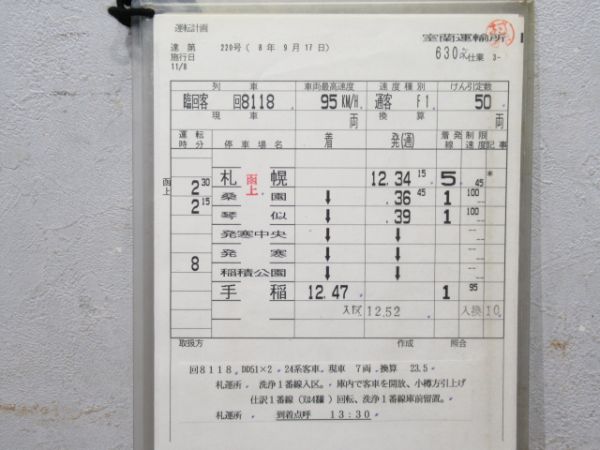 運転計画
達第 220号 ( 8年 9月17日)
施行日
11/8
室蘭運輸所
630 仕業 3-
列車 車両最高速度 速度種別 けん引定数
臨回客 回8118 95KM/H 通客 F1 50
現車 両 換算 両
運転時分 停車場名 着 発(通) 着発線 制限速度 記事
函上
2 30 札幌 函上 12.34 15 5 45 *
2 15 桑園 ↓ .36 45 1 100
琴似 ↓ .39 1 100
発寒中央 ↓ ↓
8 発寒 ↓ ↓
稲積公園 ↓ ↓
手稲 12.47 1 95
入区 12.52 入換 10
取扱方 作成 照合
回8118. DD51×2. 24系客車. 現車 7両. 換算 23.5.
札運所. 洗浄1番線入区. 庫内で客車を開放、小樽方引上げ
仕訳1番線 ( ) 回転、洗浄1番線庫前留置.
札運所. 到着点呼 13:30.